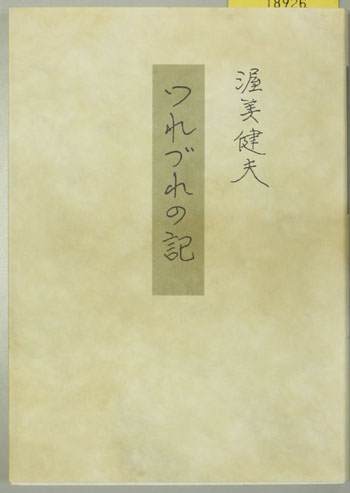 18926
渥美健夫
つれづれの記